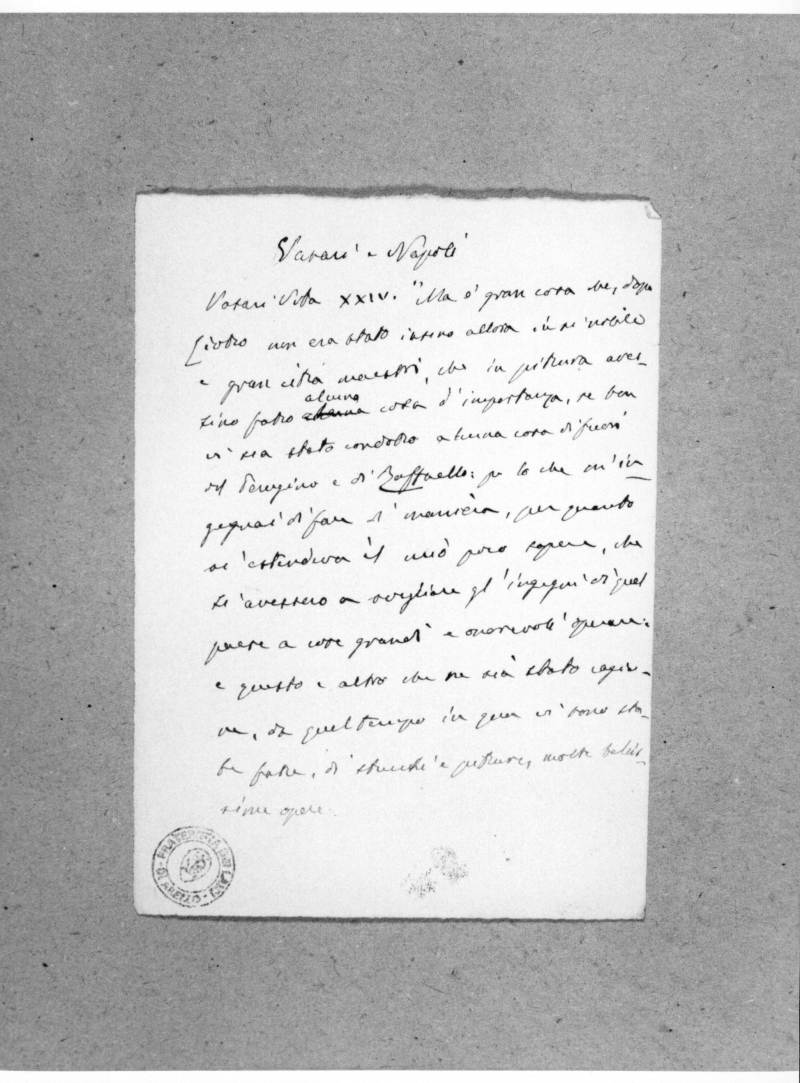 Vasari e Napoli
Vasari Vita XXIV. "Ma è gran cosa che, dopo
Giotto non era stato insino allora in sì nobile
e gran città maestri, che in pittura aves-
sino fatto alcuna cosa d'importanza, se ben
vi sia stato condotto alcuna cosa di fuori
del Perugino e di Raffaello: per lo che m'in
gegnai di fare di maniera, per quanto
si estendeva il mio poco sapere, che
si avessero a svegliare gl'ingegni di quel
paese a cose grandi e onorevoli operare:
e questo e altro che ne sia stato cagio-
ne, da quel tempo in qua vi sono sta-
te fatte, di stucchi e pitture, molte belis-
sime opere
FRATERNITA DEI LAICI - DI AREZZO -